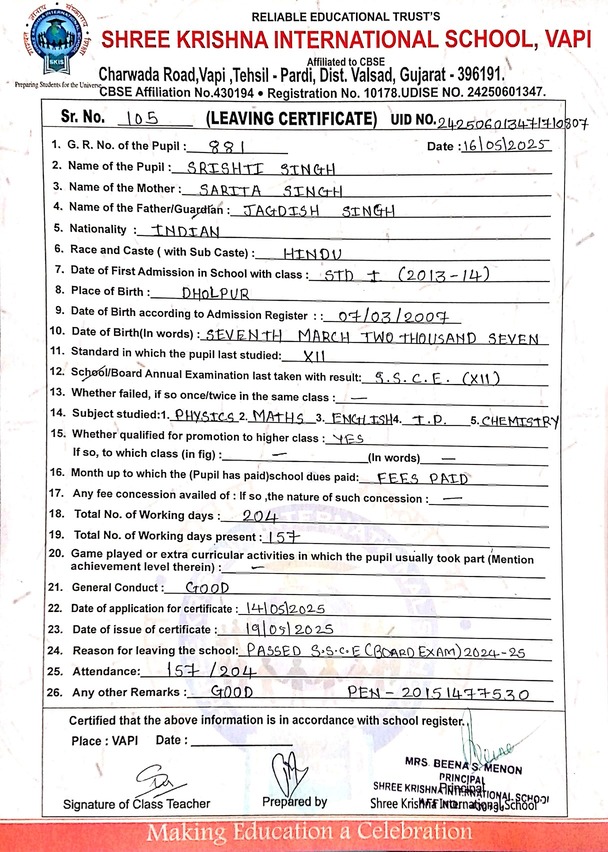 RELIABLE EDUCATIONAL TRUST'S
SHREE KRISHNA INTERNATIONAL SCHOOL, VAPI
Affiliated to CBSE
Charwada Road,Vapi ,Tehsil - Pardi, Dist. Valsad, Gujarat - 396191.
Preparing Students for the Universe
CBSE Affiliation No.430194 • Registration No. 10178.UDISE NO. 24250601347.
SKIS
Sr. No. 105 (LEAVING CERTIFICATE) UID NO. 242506013471710807
1. G. R. No. of the Pupil : 881 Date : 16/05/2025
2. Name of the Pupil : SRISHTI SINGH
3. Name of the Mother : SARITA SINGH
4. Name of the Father/Guardian : JAGDISH SINGH
5. Nationality : INDIAN
6. Race and Caste ( with Sub Caste) : HINDU
7. Date of First Admission in School with class : STD I (2013-14)
8. Place of Birth : DHOLPUR
9. Date of Birth according to Admission Register : : 07/03/2007
10. Date of Birth(In words) : SEVENTH MARCH TWO THOUSAND SEVEN
11. Standard in which the pupil last studied: XII
12. School/Board Annual Examination last taken with result: S.S.C.E. (XII)
13. Whether failed, if so once/twice in the same class : —
14. Subject studied:1. PHYSICS 2. MATHS 3. ENGLISH 4. I.P. 5. CHEMISTRY
15. Whether qualified for promotion to higher class : YES
If so, to which class (in fig) : — (In words) —
16. Month up to which the (Pupil has paid)school dues paid: FEES PAID
17. Any fee concession availed of : If so ,the nature of such concession : —
18. Total No. of Working days : 204
19. Total No. of Working days present : 157
20. Game played or extra curricular activities in which the pupil usually took part (Mention
achievement level therein) : —
21. General Conduct : GOOD
22. Date of application for certificate : 14/05/2025
23. Date of issue of certificate : 19/05/2025
24. Reason for leaving the school: PASSED S.S.C.E (BOARD EXAM) 2024-25
25. Attendance: 157/204
26. Any other Remarks : GOOD PEN - 20151477530
Certified that the above information is in accordance with school register.
Place : VAPI Date :
MRS. BEENA S. MENON
PRINCIPAL
SHREE KRISHNA INTERNATIONAL SCHOOL
Principal
Signature of Class Teacher Prepared by Shree Krishna International School
Making Education a Celebration